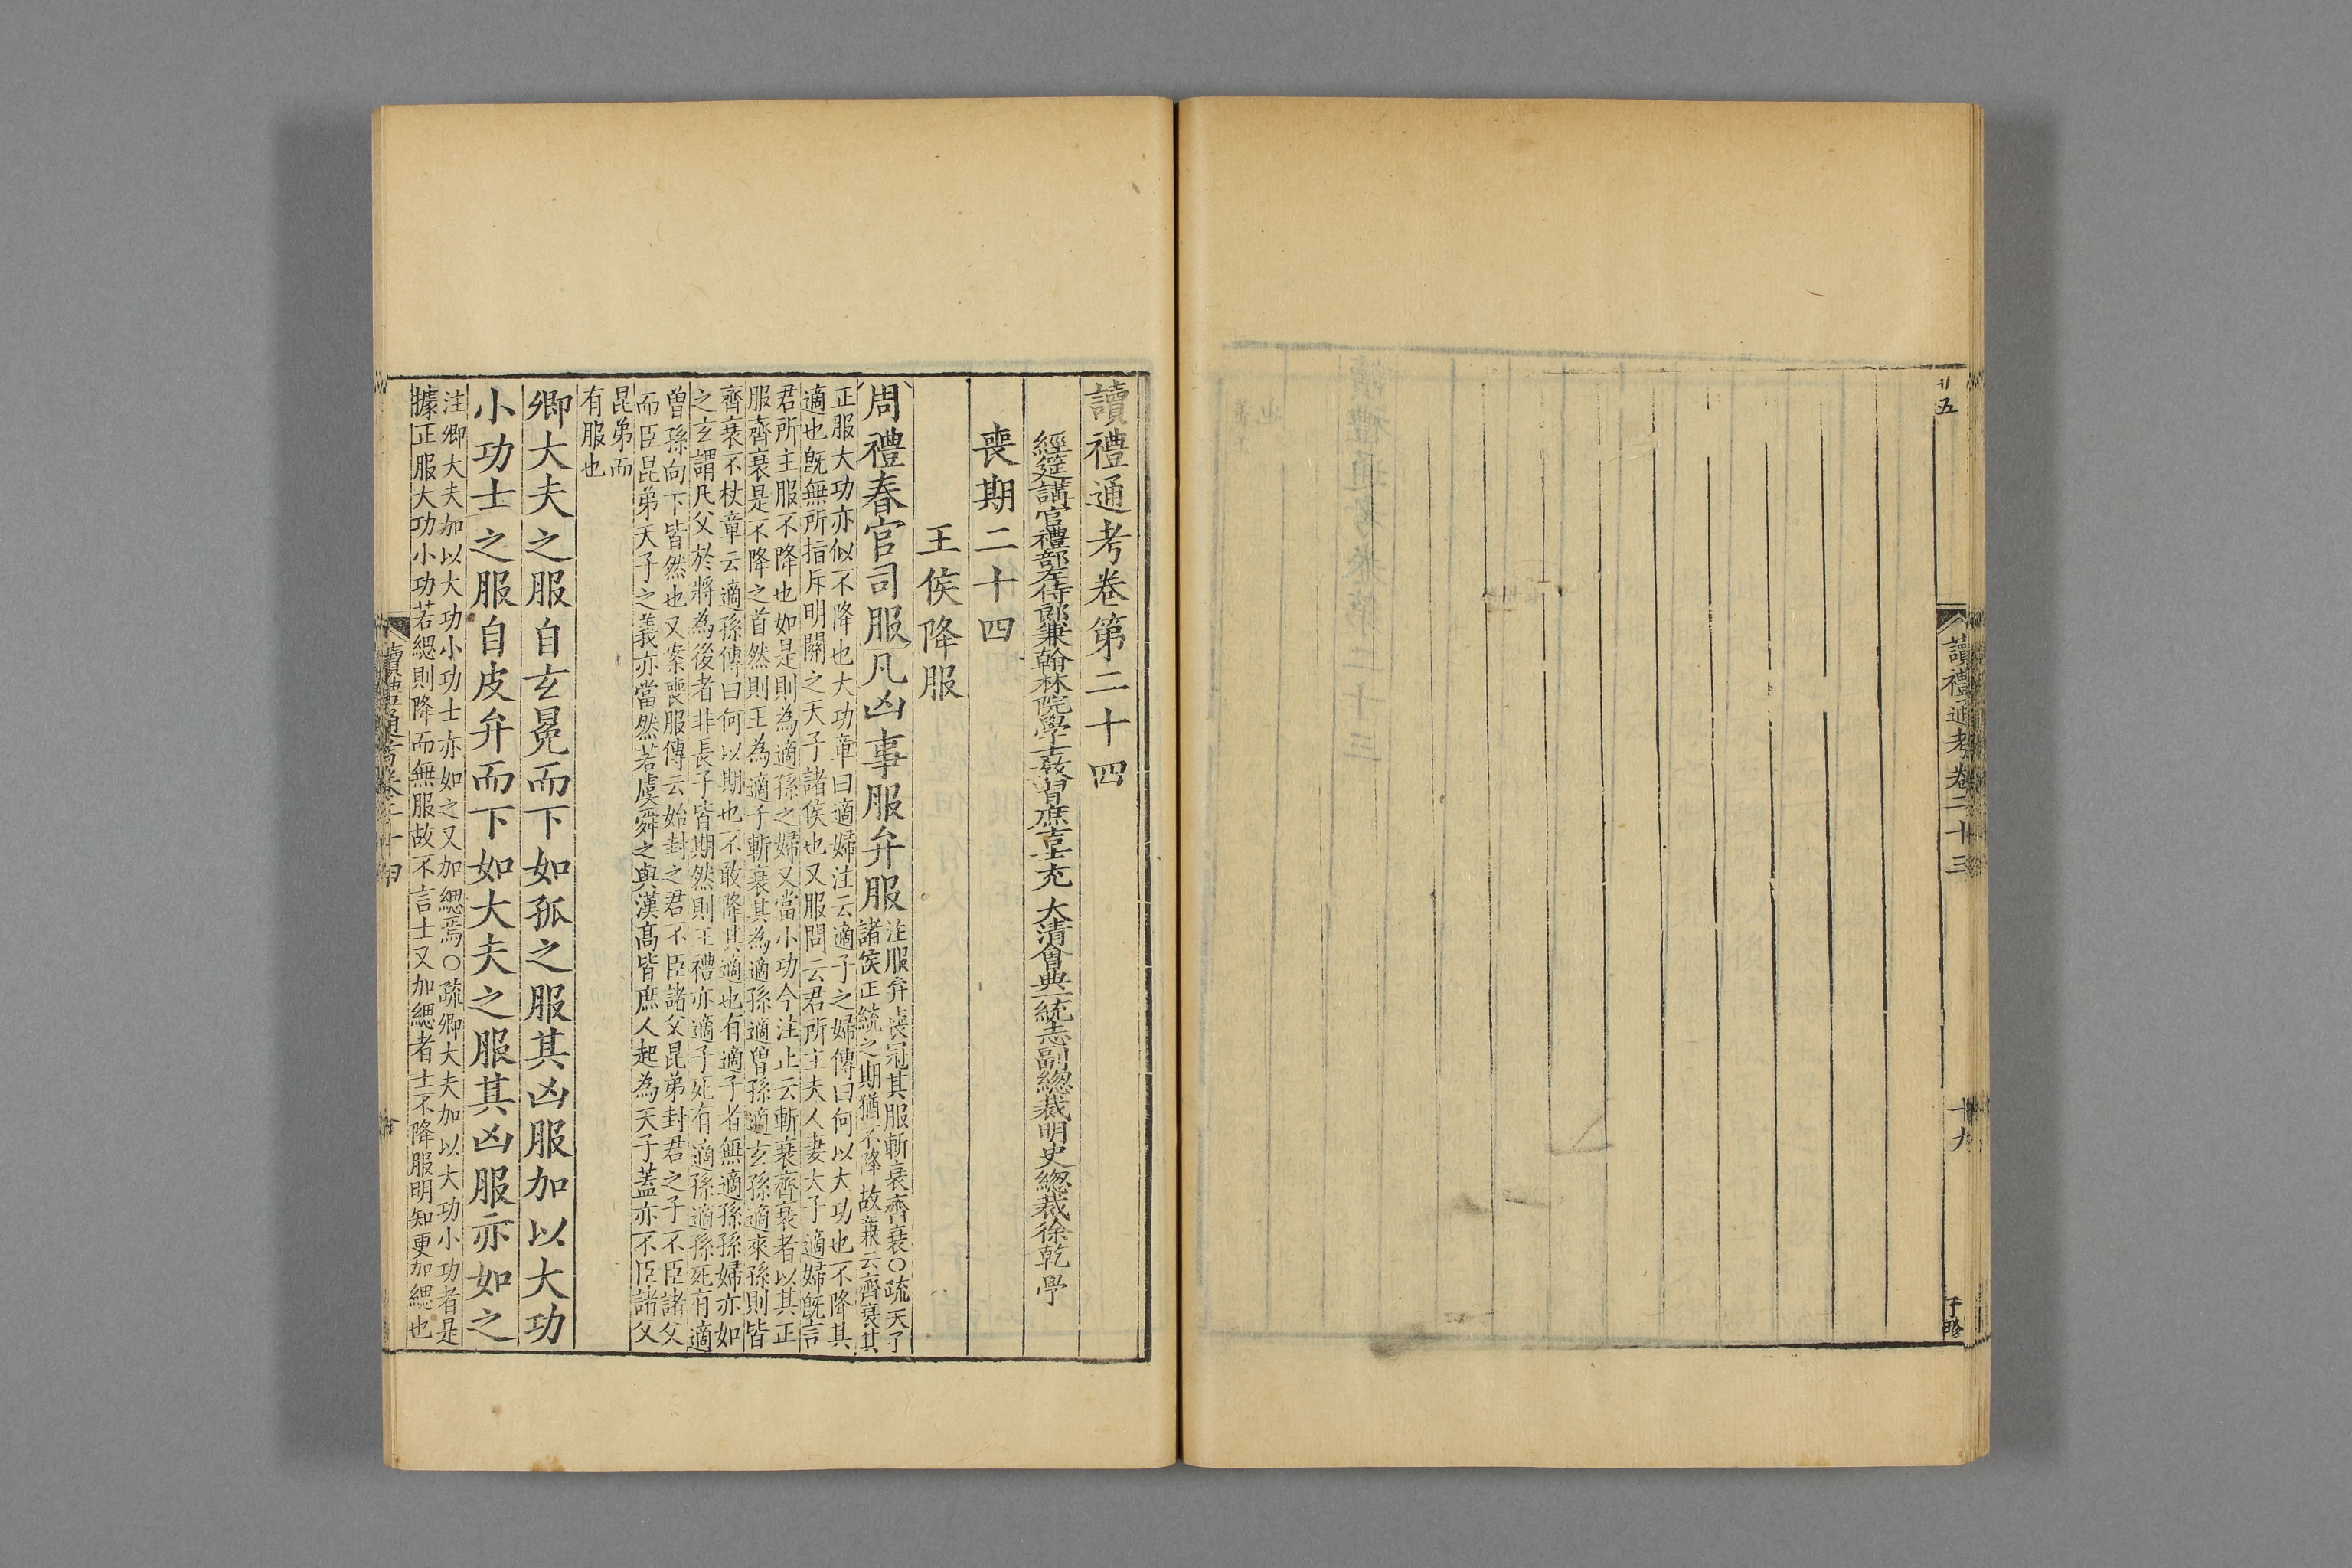 廿五
讀禮通考卷二十三
十九
讀禮通考卷第二十四
經筵講官禮部左侍郎兼翰林院學士教習庶吉士充 大清會典一統志副總裁明史總裁徐乾學
喪期二十四
王侯降服
周禮春官司服凡凶事服弁服
注服弁喪冠其服斬衰齊衰○疏天子
諸侯正統之期猶不降故兼云齊衰其
正服大功亦似不降也大功章曰適婦注云適子之婦傳曰何以大功也不降其
適也旣無所指斥明關之天子諸侯也又服問云君所主夫人妻大子適婦旣言
君所主服不降也如是則為適孫之婦又當小功今注止云斬衰齊衰者以其正
服齊衰是不降之首然則王為適子斬衰其為適孫適曾孫適玄孫適來孫則皆
齊衰不杖章云適孫傳曰何以期也不敢降其適也有適子者無適孫孫婦亦如
之玄謂凡父於將為後者非長子皆期然則王禮亦適子死有適孫適孫死有適
曾孫向下皆然也又案喪服傳云始封之君不臣諸父昆弟封君之子不臣諸父
而臣昆弟天子之義亦當然若虞舜之與漢高皆庶人起為天子蓋亦不臣諸父
昆弟而
有服也
卿大夫之服自玄冕而下如孤之服其凶服加以大功
小功士之服自皮弁而下如大夫之服其凶服亦如之
注卿大夫加以大功小功士亦如之又加緦焉○疏卿大夫加以大功小功者是
據正服大功小功若緦則降而無服故不言士又加緦者士不降服明知更加緦也
讀禮通考卷二十四